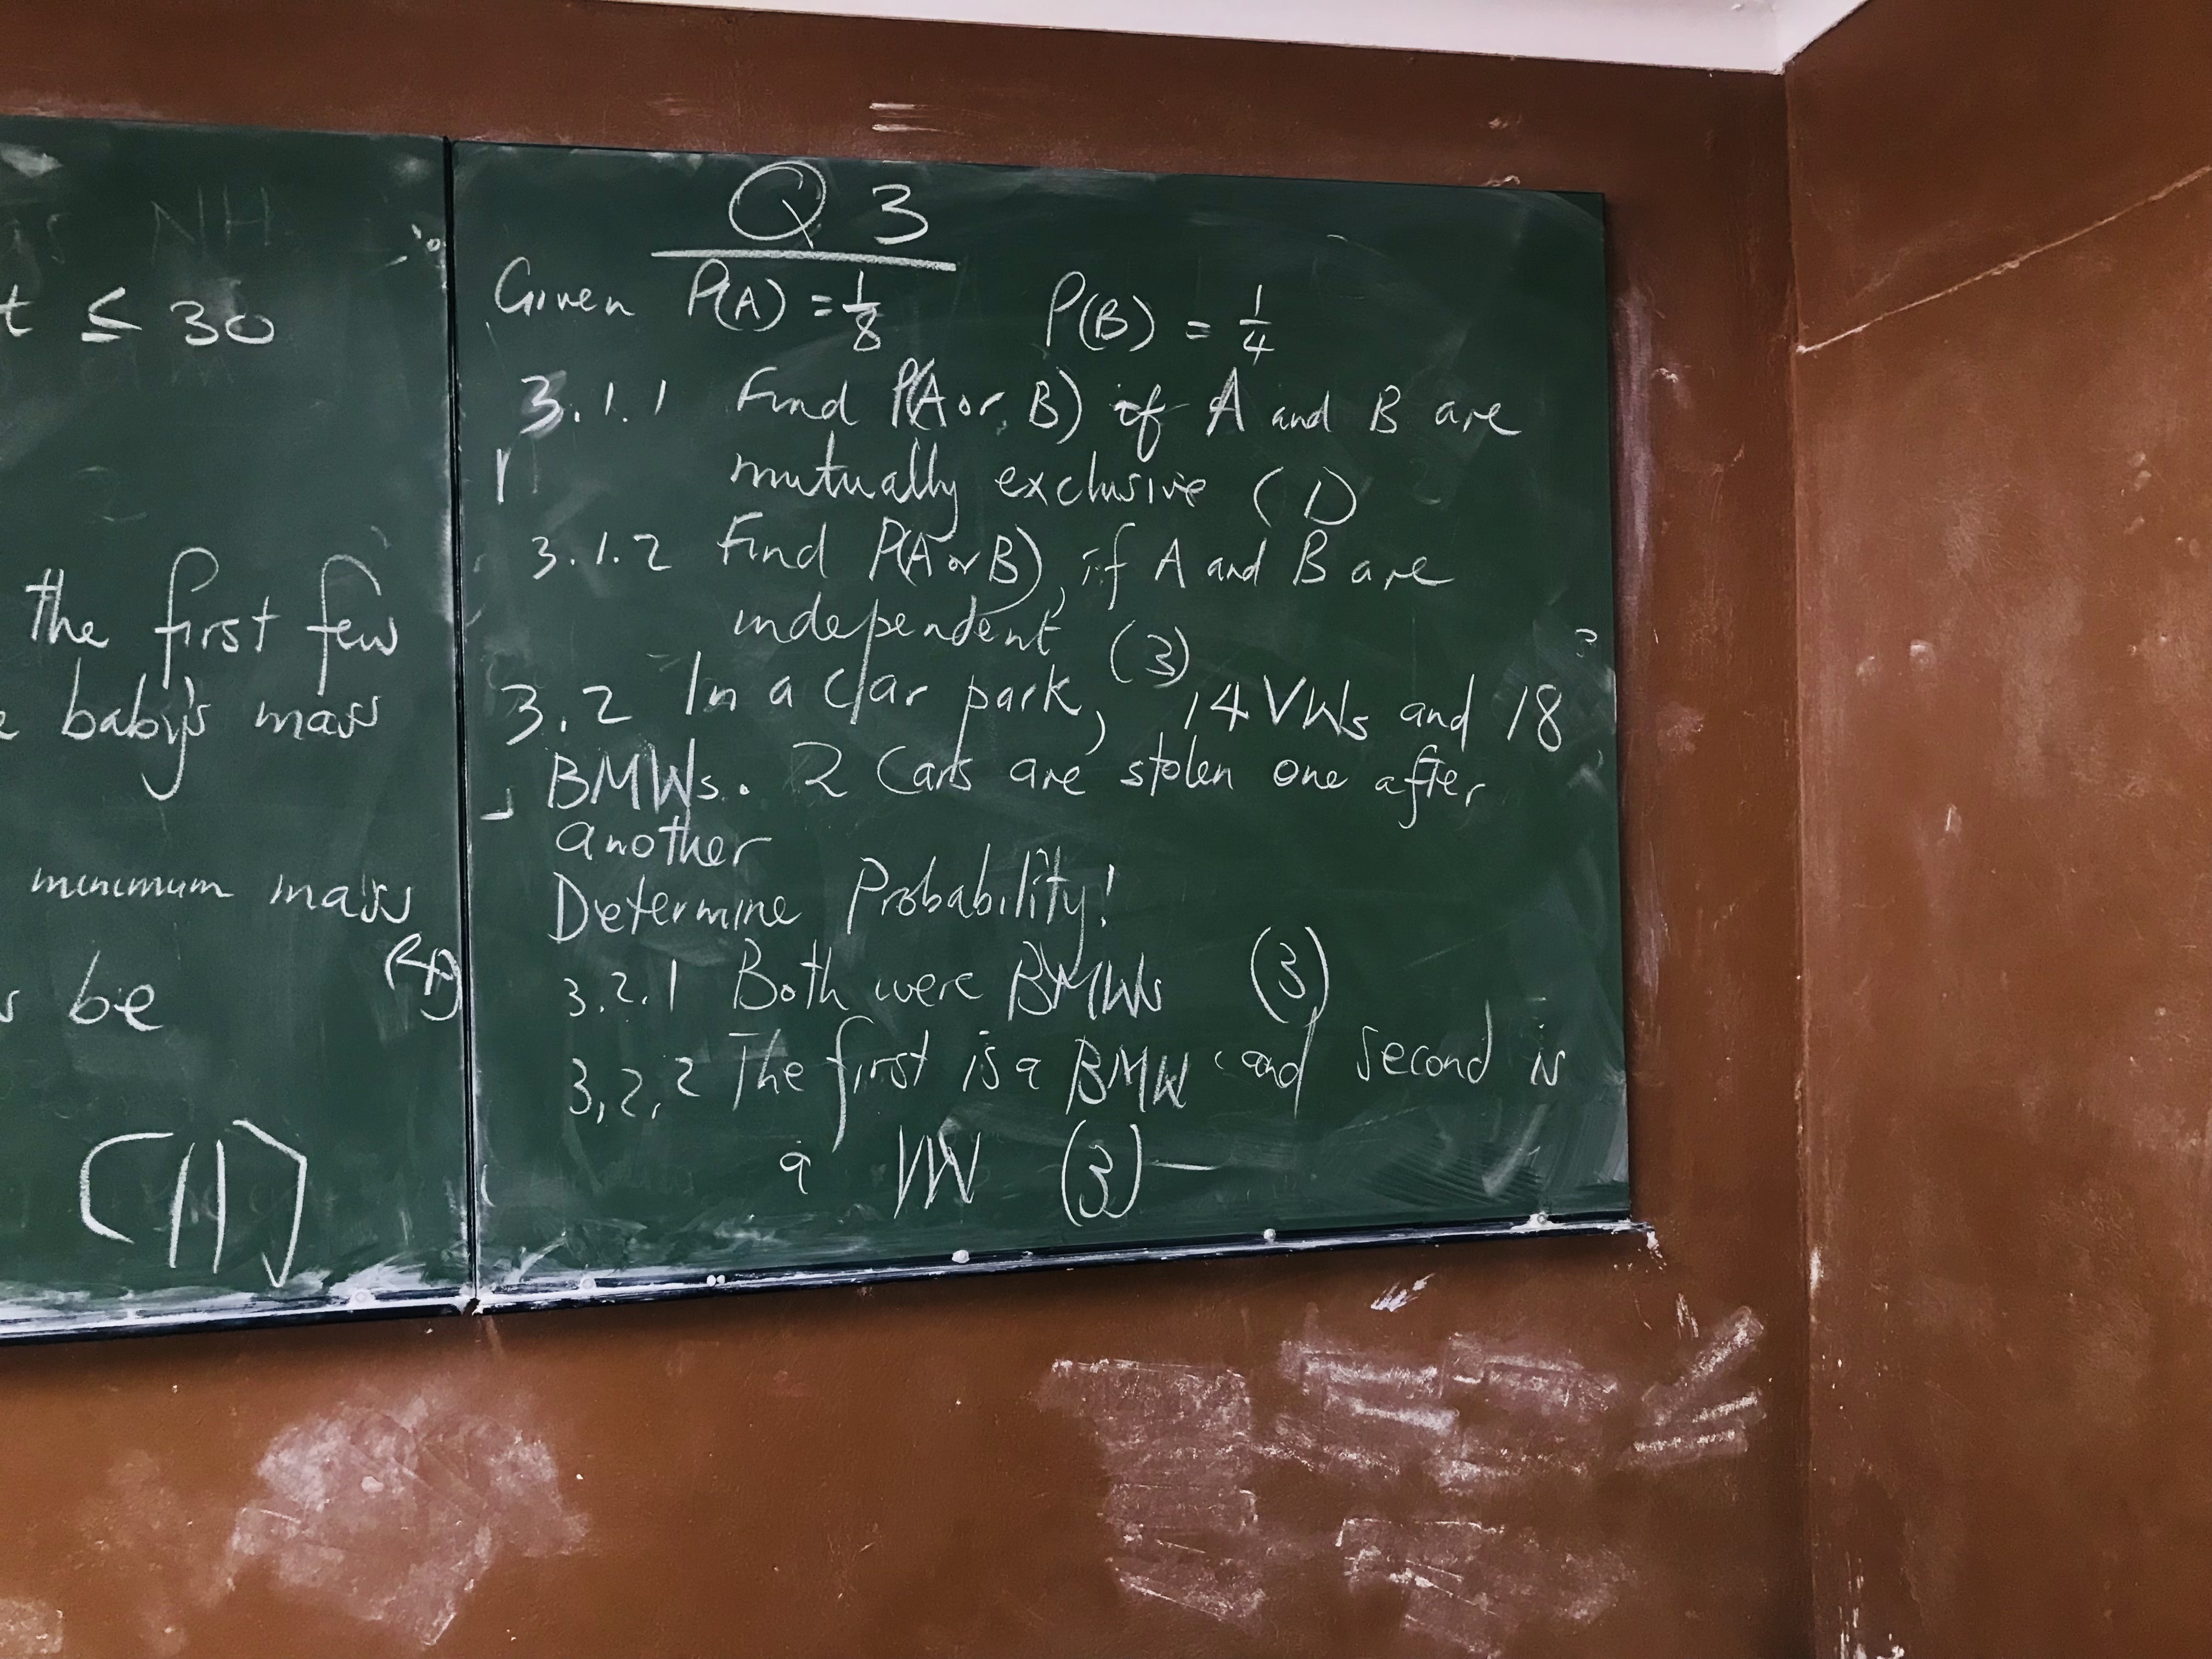 t ≤ 30
the first few
baby's mass
minimum mass
(4)
be
(11)
Q 3
Given P(A) = 1/8 P(B) = 1/4
3.1.1 Find P(A or B) if A and B are
mutually exclusive (1)
3.1.2 Find P(A or B), if A and B are
independent (3)
3.2 In a car park, 14 VWs and 18
BMWs. 2 Cars are stolen one after
another
Determine Probability!
3.2.1 Both were BMWs (3)
3,2,2 The first is a BMW and second is
a VW (3)